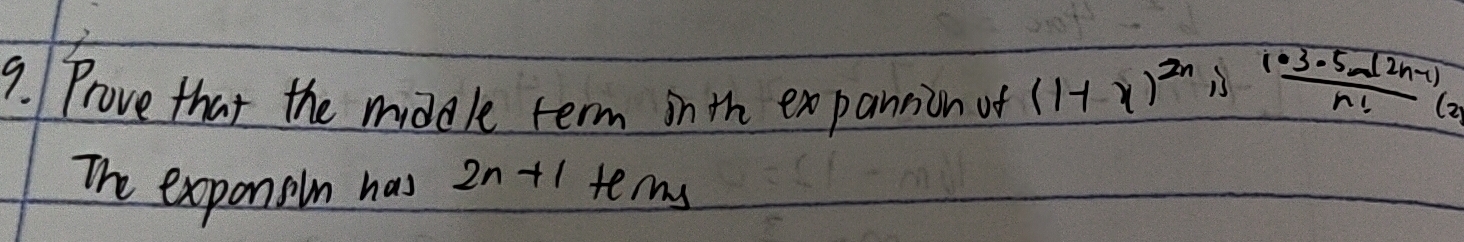 9. Prove that the middle term in th expansion of (1+x)^2n is 1•3•5...(2n-1)/n! (2
The expansion has 2n+1 terms